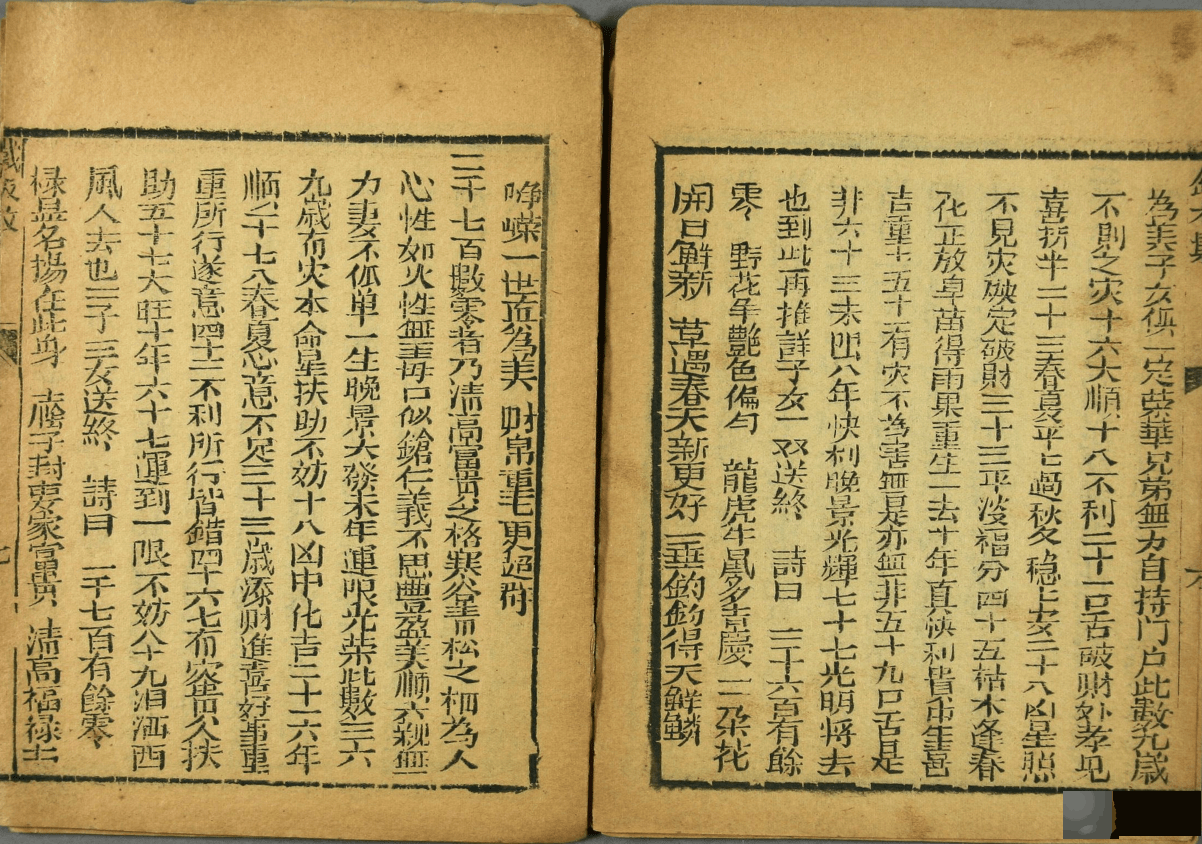 為美子女俱一定荣華兄弟無方自持门户此數九歲
不則之灾十六大順十八不利二十一口舌破財外孝見
喜折半二十三春夏平七過秋冬穏上交二十八凶星照
不見灾殃定破財三十三平淡福分四十五枯木逢春
花正放旱苗得雨果重生一去十年真快利貴命生喜
吉重七五十六有灾不為害無是亦無非五十九口舌是
非六十三未四八年快利晚景光輝七十七光明将去
也到此再推詳子女一双送終 詩曰 二十六百有餘
零 野花年艷色偏匀 龍虎牛鼠多吉慶一朶花
開日鮮新 草遇春天新更好一垂釣釣得天鮮鱗
峥嶸一世立為美 财帛重七更超群
二十七百數零者乃清高富貴之格寒谷舍而松之栖為人
心性如火性無毒口似鎗仁義不思豊盈美順六親無
力妻不孤單一生晚景大發未年運限光荣此數三六
九歲有灾本命星扶助不妨十八凶中化吉二十六年
順二十七八春夏心意不足三十三歲添财進喜好事重
重所行遂意四十二不利所行皆錯四十六七有灾貴人扶
助五十七大旺十年六十七運到一限不妨八十九泪洒西
風人去也二子三女送終 詩曰 二千七百有餘零
禄显名揚在此身 廕子封妻家富貴 清高福禄士